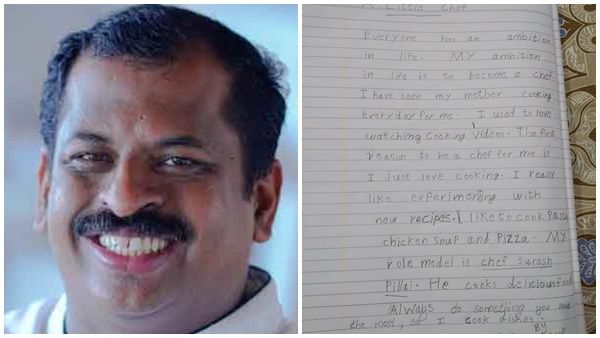 A Little Chef
Everyone has an ambition
in life. MY ambition
in life is to become a chef.
I have seen my mother cooking
everyday for me. I used to love
watching cooking videos. The first
reason to be a chef for me is
I Just love cooking. I really
like experimenting with
new recipes. I like to cook Pasta
chicken soup and Pizza. MY
role model is chef suresh
Pillai. He cooks delicious food
Always do something you love
the most, so I cook dishes.
By